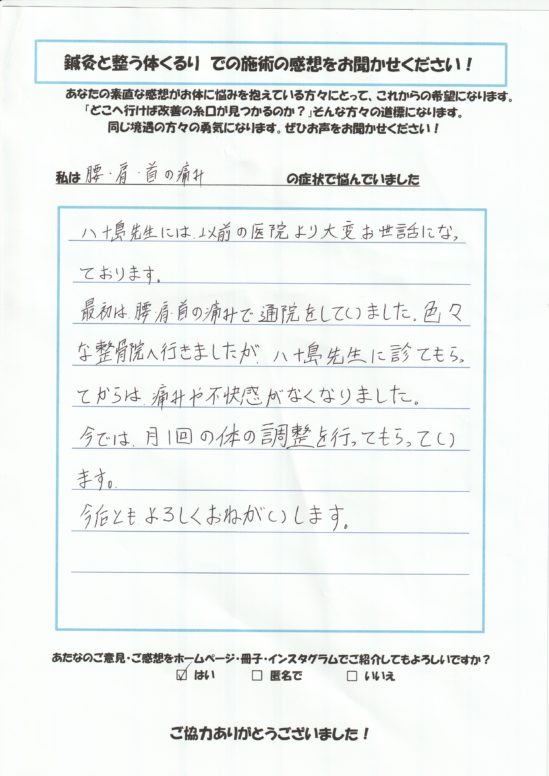 鍼灸と整う体くるり での施術の感想をお聞かせください！
あなたの素直な感想がお体に悩みを抱えている方々にとって、これからの希望になります。
「どこへ行けば改善の糸口が見つかるのか？」そんな方々の道標になります。
同じ境遇の方々の勇気になります。ぜひお声をお聞かせください！
私は 腰・肩・首の痛み の症状で悩んでいました
八十島先生には、以前の医院より大変お世話になっ
ております。
最初は、腰肩首の痛みで通院をしていました。色々
な整骨院へ行きましたが、八十島先生に診てもらっ
てからは、痛みや不快感がなくなりました。
今では、月1回の体の調整を行ってもらってい
ます。
今后ともよろしくおねがいします。
あたなのご意見・ご感想をホームページ・冊子・インスタグラムでご紹介してもよろしいですか？
☑ はい □ 匿名で □ いいえ
ご協力ありがとうございました！